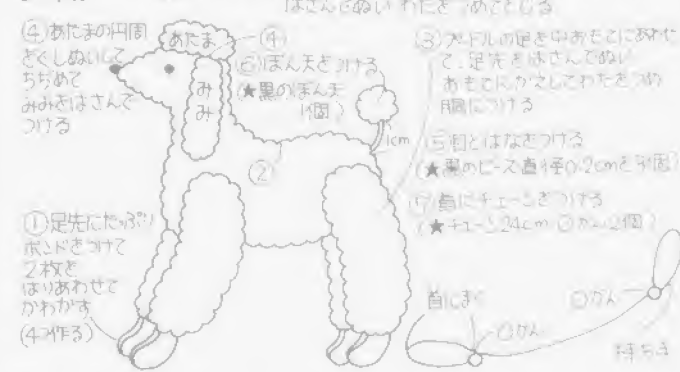 はさんでぬい わたをつめてとじる
④あたまの円周
をぐしぬいして
ちぢめて
みみをはさんで
つける
あたま
④
みみ
⑥ぼん天をつける
(★黒のぼん天
1個)
1cm
②
③プードルの足を中おもてにあわせ
て、足先をはさんでぬい
おもてにかえしてわたをつめ
胴につける
⑤目とはなをつける
(★黒のビーズ直径0.2cmを3個)
⑦首にチェーンをつける
(★チェーン24cm 〇かん2個)
①足先にたっぷり
ボンドをつけて
2枚を
はりあわせて
かわかす
(4つ作る)
首にまく
〇かん
〇かん
持ち手